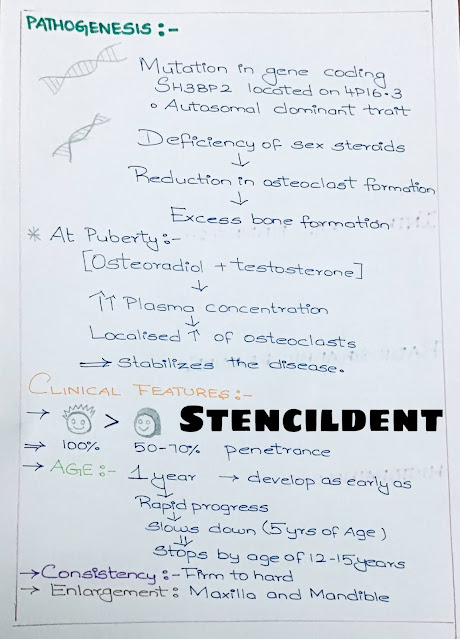 PATHOGENESIS :-
Mutation in gene coding
SH3BP2 located on 4P16.3
o Autosomal dominant trait
Deficiency of sex steroids
↓
Reduction in osteoclast formation
↓
Excess bone formation
* At Puberty :-
[Osteoradiol + testosterone]
↓
↑↑ Plasma concentration
↓
Localised ↑ of osteoclasts
⇒ Stabilizes the disease.
CLINICAL FEATURES :-
→ > STENCILDENT
⇒ 100% 50-70% penetrance
→ AGE :- 1 year → develop as early as
↓
Rapid progress
↓
Slows down (5 yrs of Age)
⇓
Stops by age of 12-15 years
→ Consistency :- Firm to hard
→ Enlargement : Maxilla and Mandible